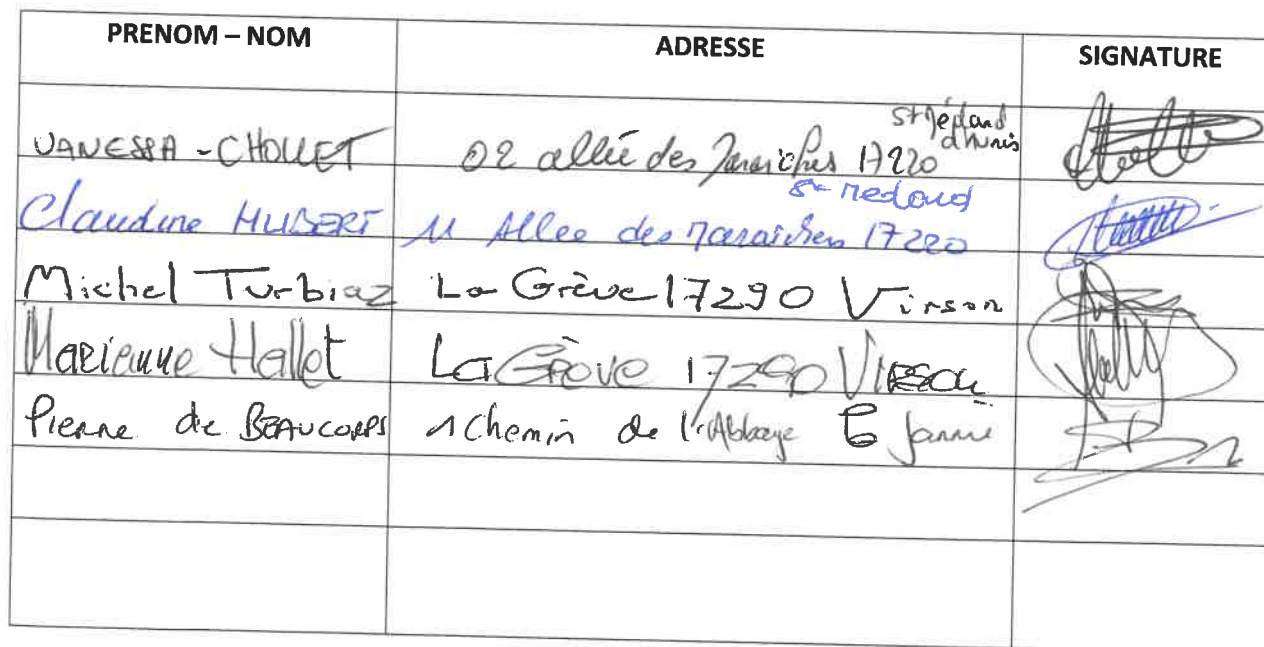 PRENOM – NOM ADRESSE SIGNATURE
VANESSA - CHOLLET 02 allée des Maraichers 17220 St Médard d'Aunis
Claudine HUBERT 11 Allee des Maraichers 17220 St Medard
Michel Turbiaz La Grève 17290 Virson
Marianne Hallet La Grève 17290 Virson
Pierre de BEAUCORPS 1 Chemin de l'Abbaye Jarrie